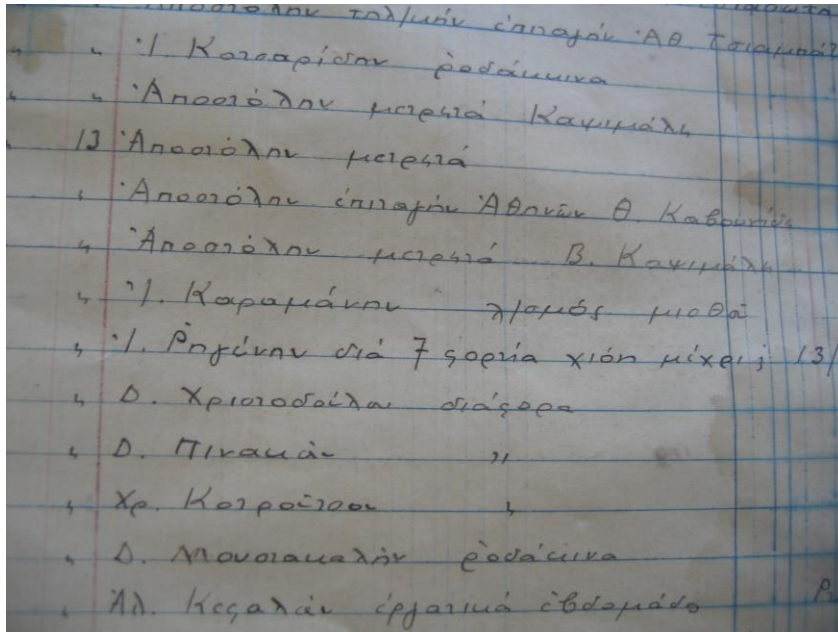 Ἀποστόλην τηλ/κήν ἐπιταγήν Ἀθ.
" " Ἰ. Κοτσαρίδην ῥοδάκινα
" " Ἀποστόλην μετρητά Καψιμάλη
13 Ἀποστόλην μετρητά
" Ἀποστόλην ἐπιταγήν Ἀθηνῶν Θ.
" Ἀποστόλην μετρητά Β. Καψιμάλη
" Ἰ. Καραμάνην λ/σμός μισθοῦ
" Ἰ. Ῥηγίνην διά 7 φορτία χιόνι μέχρι 13/
" Δ. Χριστοδούλου διάφορα
" Δ. Πινακᾶν "
" Χρ. Κοτρούτσου "
" Δ. Μουστακαλήν ῥοδάκινα
" Ἀλ. Κεφαλᾶν ἐργατικά ἑβδομάδα